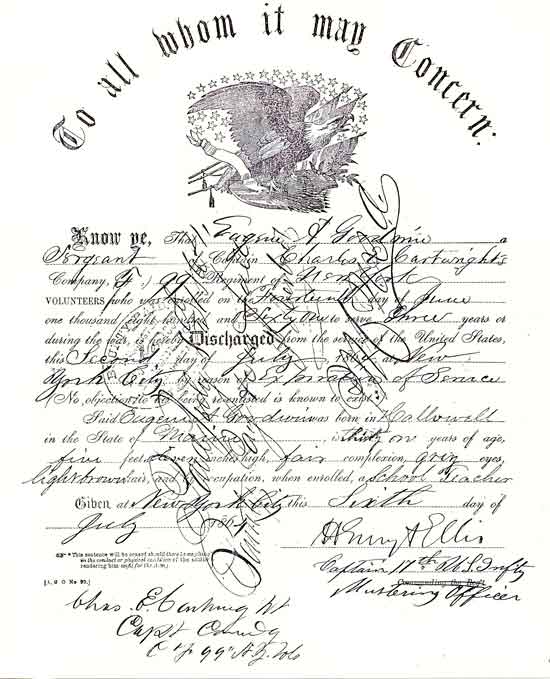 To all whom it may Concern:
Know ye, That Eugene A Goodwin a
Sergeant Captain Charles E Cartwright's
Company, F, 99 Regiment of New York
VOLUNTEERS who was enrolled on the Fourteenth day of June
one thousand eight hundred and Sixty One to serve three years or
during the war, is hereby Discharged from the service of the United States,
this Second day of July, 1864, at New
York City by reason of Expiration of Service
(No objection to his being re-enlisted is known to exist.*)
Said Eugene A Goodwin was born in Hallowell
in the State of Maine, is thirty one years of age,
five feet eleven inches high, fair complexion, grey eyes,
light brown hair, and by occupation, when enrolled, a School Teacher
Given at New York City this Sixth day of
July 1864
Henry A Ellis
Captain 17th U.S. Infty
Commanding the Regt.
Mustering Officer
*This sentence will be erased should there be anything
in the conduct or physical condition of the soldier
rendering him unfit for the Army.
[A. G. O. No. 99.]
Chas. E. Cartwright
Capt Comdg
Co F 99th N.Y. Vols